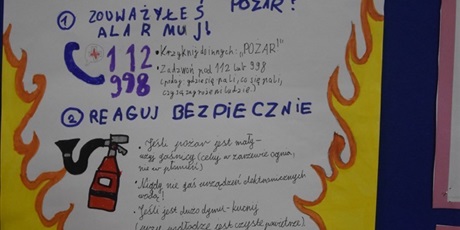 ① ZAUWAŻYŁEŚ POŻAR?
ALARMUJ!
112
998
• Krzyknij do innych: „POŻAR!"
• Zadzwoń pod 112 lub 998
(podaj: gdzie się pali, co się pali,
czy są zagrożeni ludzie.)
② REAGUJ BEZPIECZNIE
• Jeśli pożar jest mały –
użyj gaśnicy (celuj w zarzewie ognia,
nie w płomień)
• Nigdy nie gaś urządzeń elektronicznych
wodą!
• Jeśli jest dużo dymu – kucnij
(przy podłodze jest czyste powietrze)